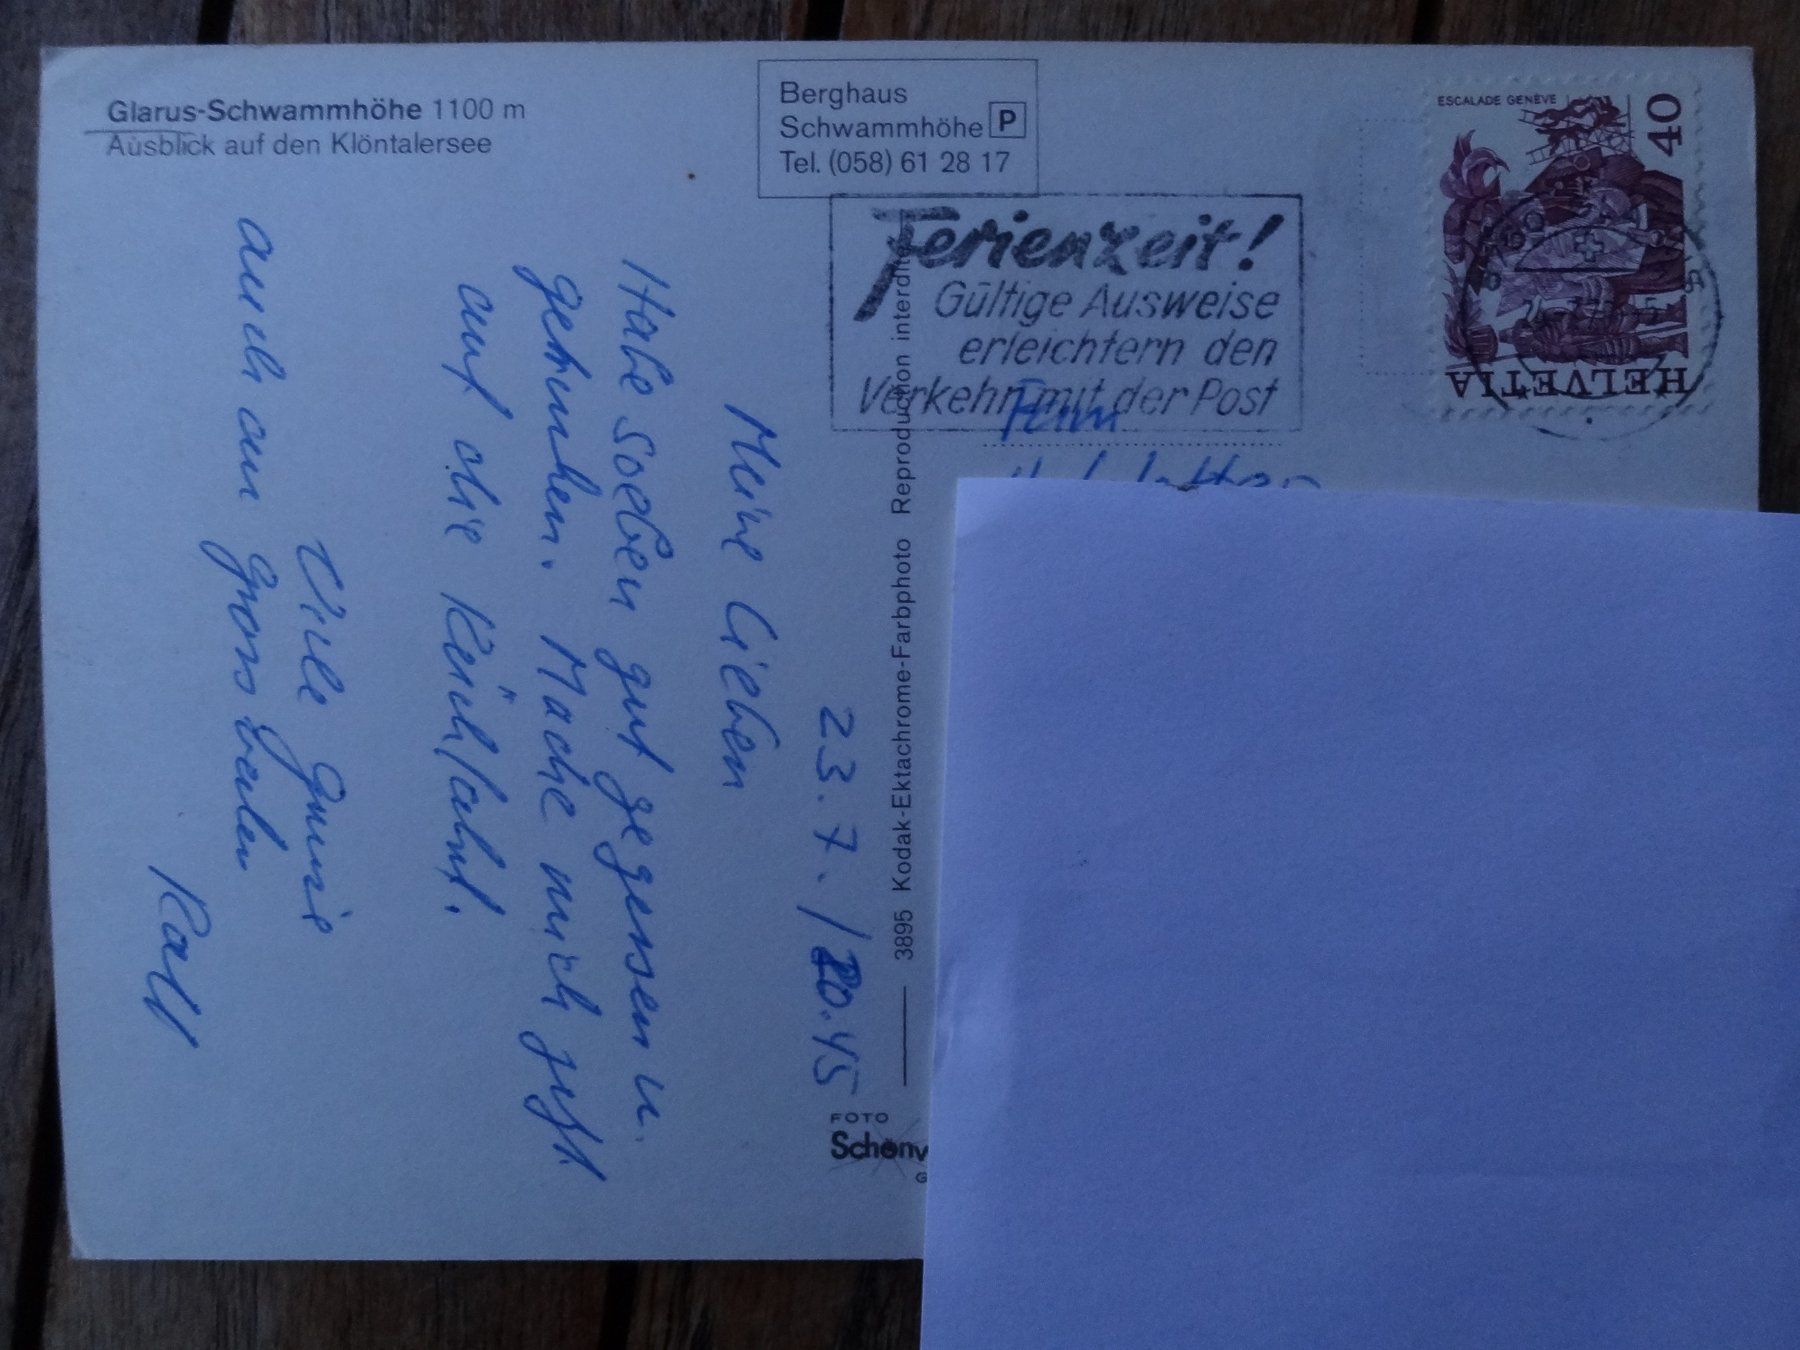 Glarus-Schwammhöhe 1100 m
Ausblick auf den Klöntalersee
Berghaus
Schwammhöhe P
Tel. (058) 61 28 17
ESCALADE GENÈVE
40
HELVETIA
Ferienzeit!
Gültige Ausweise
erleichtern den
Verkehr mit der Post
Fam
3895 Kodak-Ektachrome-Farbphoto Reproduction interdite
FOTO
Schönw
G
23.7./20.45
Meine Lieben
Habe soeben gut gegessen u.
getrunken. Mache mich jetzt
auf die Rückfahrt.
Viele Grüsse
auch an
Ralf